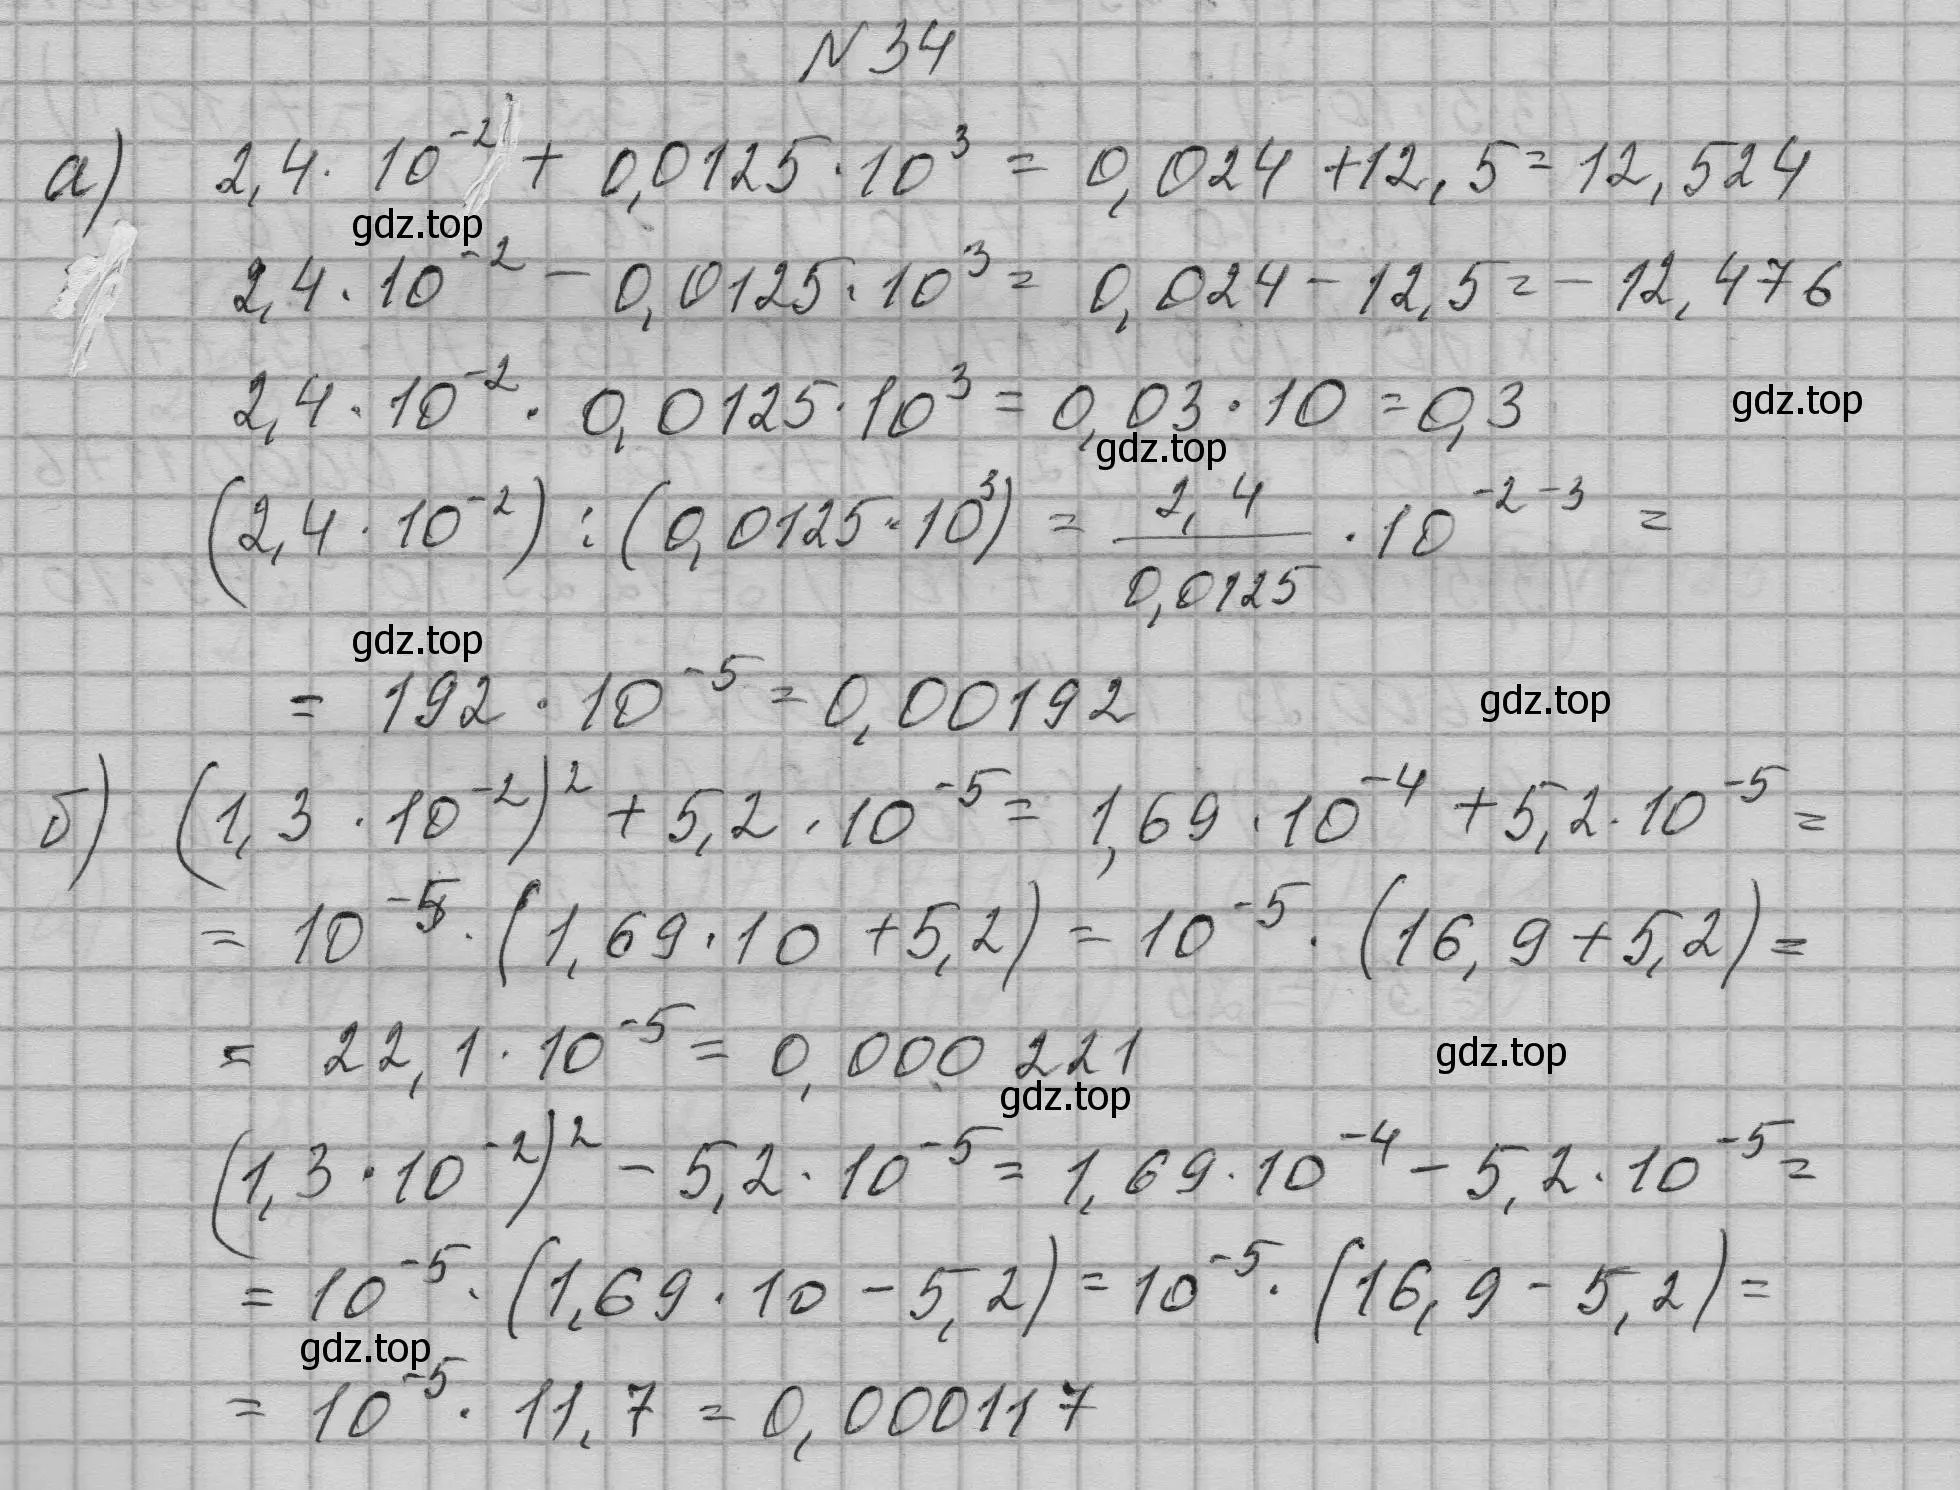 № 34
а) 2,4 · 10⁻² + 0,0125 · 10³ = 0,024 + 12,5 = 12,524
gdz.top
2,4 · 10⁻² − 0,0125 · 10³ = 0,024 − 12,5 = − 12,476
2,4 · 10⁻² · 0,0125 · 10³ = 0,03 · 10 = 0,3
gdz.top
gdz.top
(2,4 · 10⁻²) : (0,0125 · 10³) = 2,4/0,0125 · 10⁻²⁻³ =
gdz.top
= 192 · 10⁻⁵ = 0,00192
gdz.top
б) (1,3 · 10⁻²)² + 5,2 · 10⁻⁵ = 1,69 · 10⁻⁴ + 5,2 · 10⁻⁵ =
= 10⁻⁵ · (1,69 · 10 + 5,2) = 10⁻⁵ · (16,9 + 5,2) =
= 22,1 · 10⁻⁵ = 0,000 221
gdz.top
gdz.top
(1,3 · 10⁻²)² − 5,2 · 10⁻⁵ = 1,69 · 10⁻⁴ − 5,2 · 10⁻⁵ =
= 10⁻⁵ · (1,69 · 10 − 5,2) = 10⁻⁵ · (16,9 − 5,2) =
gdz.top
= 10⁻⁵ · 11,7 = 0,000117